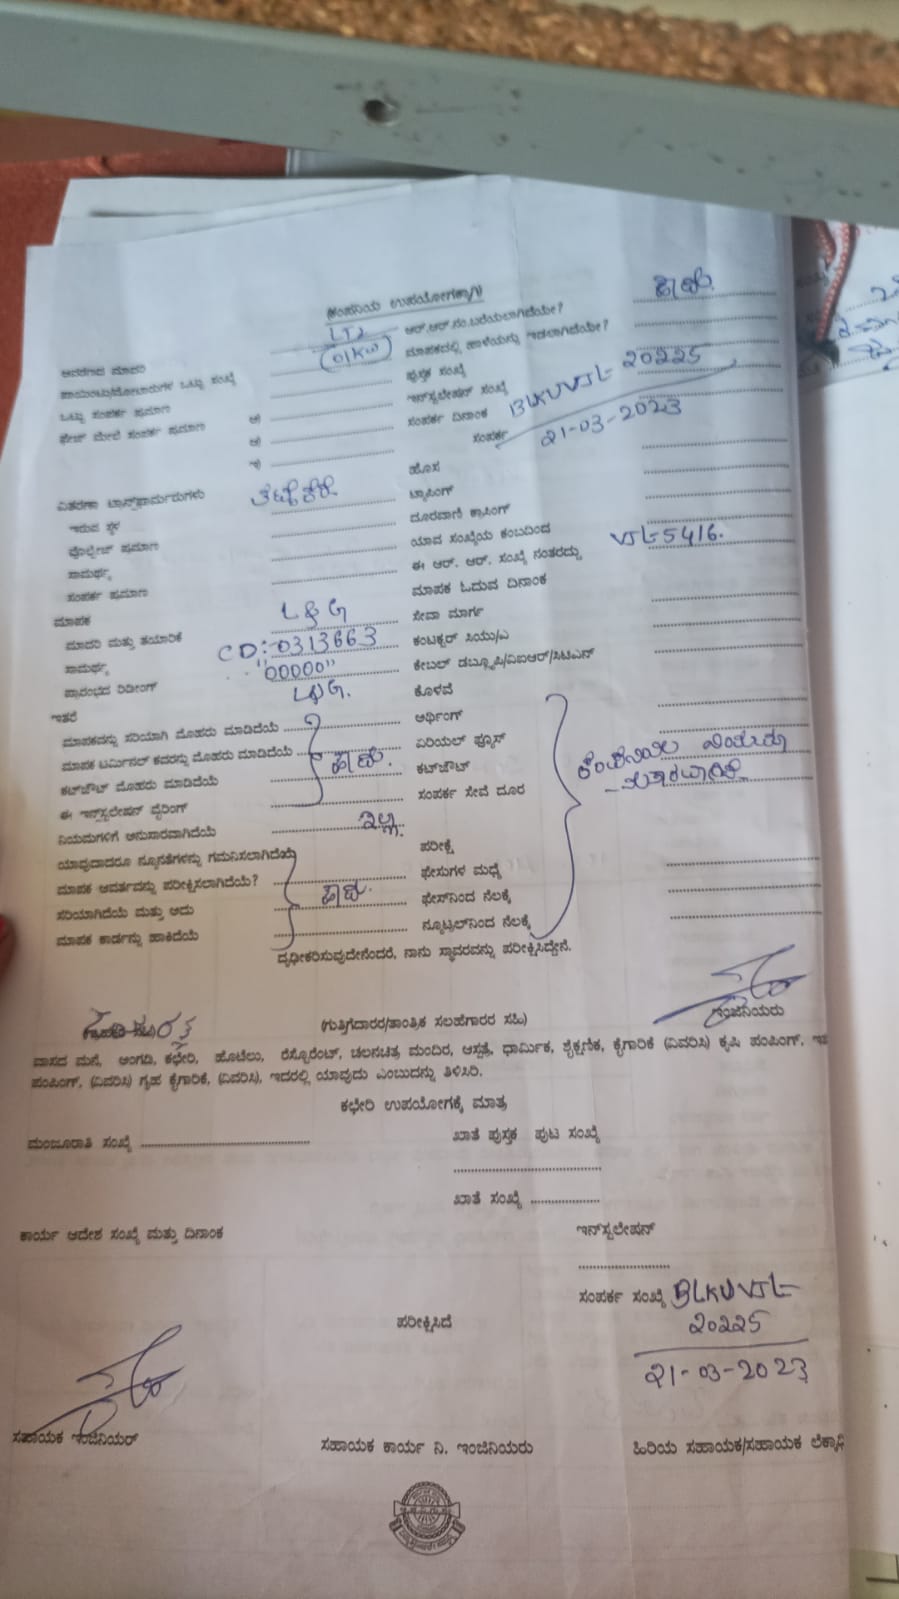 (ಕಂಪನಿಯ ಉಪಯೋಗಕ್ಕಾಗಿ)
LT2
(01KW)
ಆರ್.ಆರ್.ನಂ.ಬರೆಯಲಾಗಿದೆಯೇ? ಹೌದು.
ಮಾಪಕದಲ್ಲಿ ಹಾಳೆಯನ್ನು ಇಡಲಾಗಿದೆಯೇ?
ಪುಸ್ತಕ ಸಂಖ್ಯೆ
ಇನ್‌ಸ್ಟಲೇಷನ್ ಸಂಖ್ಯೆ BLKUVJL-20225
ಸಂಪರ್ಕ ದಿನಾಂಕ
ಸಂಪರ್ಕ 21-03-2023
ಒಟ್ಟು ಸಂಪರ್ಕ ಪ್ರಮಾಣ
ಫೇಸ್ ಮೇಲೆ ಸಂಪರ್ಕ ಪ್ರಮಾಣ
ಹೊಸ
ವಿತರಣಾ ಟ್ರಾನ್ಸ್‌ಫಾರ್ಮರುಗಳು
ಟ್ಯಾಪಿಂಗ್
ಇರುವ ಸ್ಥಳ
ದೂರವಾಣಿ ಕ್ರಾಸಿಂಗ್
ವೋಲ್ಟೇಜ್ ಪ್ರಮಾಣ
ಯಾವ ಸಂಖ್ಯೆಯ ಕಂಬದಿಂದ
ಸಾಮರ್ಥ್ಯ
ಈ ಆರ್. ಆರ್. ಸಂಖ್ಯೆ ನಂತರದ್ದು VJL5416.
ಸಂಪರ್ಕ ಪ್ರಮಾಣ
ಮಾಪಕ ಓದುವ ದಿನಾಂಕ
ಮಾಪಕ
ಮಾದರಿ ಮತ್ತು ತಯಾರಿಕೆ L&G
ಸೇವಾ ಮಾರ್ಗ
ಸಾಮರ್ಥ್ಯ CD:-0313663
ಕಂಡಕ್ಟರ್ ಸಿಯು/ಎ
ಪ್ರಾರಂಭದ ರಿಡೀಂಗ್ "00000"
ಕೇಬಲ್ ಡಬ್ಲ್ಯೂಪಿ/ವಿಐಆರ್/ಸಿಟಿಎನ್
ಇತರೆ L&G.
ಕೊಳವೆ
ಮಾಪಕವನ್ನು ಸರಿಯಾಗಿ ಮೊಹರು ಮಾಡಿದೆಯೆ
ಆರ್ಥಿಂಗ್
ಮಾಪಕ ಟರ್ಮಿನಲ್ ಕವರನ್ನು ಮೊಹರು ಮಾಡಿದೆಯೆ ಹೌದು.
ಏರಿಯಲ್ ಫ್ಯೂಸ್
ಕಟ್‌ಔಟ್ ಮೊಹರು ಮಾಡಿದೆಯೆ
ಕಟ್‌ಔಟ್
ಈ ಇನ್‌ಸ್ಟಲೇಷನ್ ವೈರಿಂಗ್
ಸಂಪರ್ಕ ಸೇವೆ ದೂರ
ನಿಯಮಗಳಿಗೆ ಅನುಸಾರವಾಗಿದೆಯೆ
ಯಾವುದಾದರೂ ನ್ಯೂನತೆಗಳನ್ನು ಗಮನಿಸಲಾಗಿದೆಯೆ ಇಲ್ಲ.
ಪರೀಕ್ಷೆ
ಮಾಪಕ ಆವರ್ತವನ್ನು ಪರೀಕ್ಷಿಸಲಾಗಿದೆಯೆ?
ಫೇಸುಗಳ ಮಧ್ಯೆ
ಸರಿಯಾಗಿದೆಯೆ ಮತ್ತು ಅದು ಹೌದು.
ಫೇಸ್‌ನಿಂದ ನೆಲಕ್ಕೆ
ಮಾಪಕ ಕಾರ್ಡನ್ನು ಹಾಕಿದೆಯೆ
ನ್ಯೂಟ್ರಲ್‌ನಿಂದ ನೆಲಕ್ಕೆ
ದೃಢೀಕರಿಸುವುದೇನೆಂದರೆ, ನಾನು ಸ್ಥಾವರವನ್ನು ಪರೀಕ್ಷಿಸಿದ್ದೇನೆ.
(ಗುತ್ತಿಗೆದಾರರ/ತಾಂತ್ರಿಕ ಸಲಹೆಗಾರರ ಸಹಿ) ಇಂಜಿನಿಯರು
ವಾಸದ ಮನೆ, ಅಂಗಡಿ, ಕಛೇರಿ, ಹೊಟೆಲು, ರೆಸ್ಟೊರೆಂಟ್, ಚಲನಚಿತ್ರ ಮಂದಿರ, ಆಸ್ಪತ್ರೆ, ಧಾರ್ಮಿಕ, ಶೈಕ್ಷಣಿಕ, ಕೈಗಾರಿಕೆ (ವಿವರಿಸಿ) ಕೃಷಿ ಪಂಪಿಂಗ್,
ಪಂಪಿಂಗ್, (ವಿವರಿಸಿ) ಗೃಹ ಕೈಗಾರಿಕೆ, (ವಿವರಿಸಿ), ಇದರಲ್ಲಿ ಯಾವುದು ಎಂಬುದನ್ನು ತಿಳಿಸಿರಿ.
ಕಛೇರಿ ಉಪಯೋಗಕ್ಕೆ ಮಾತ್ರ
ಮಂಜೂರಾತಿ ಸಂಖ್ಯೆ
ಖಾತೆ ಪುಸ್ತಕ ಪುಟ ಸಂಖ್ಯೆ
ಖಾತೆ ಸಂಖ್ಯೆ
ಕಾರ್ಯ ಆದೇಶ ಸಂಖ್ಯೆ ಮತ್ತು ದಿನಾಂಕ
ಇನ್‌ಸ್ಟಲೇಷನ್
ಸಂಪರ್ಕ ಸಂಖ್ಯೆ BLKUVJL-
20225
ಪರೀಕ್ಷಿಸಿದೆ
21-03-2023
ಸಹಾಯಕ ಇಂಜಿನಿಯರ್
ಸಹಾಯಕ ಕಾರ್ಯ ನಿ. ಇಂಜಿನಿಯರು
ಹಿರಿಯ ಸಹಾಯಕ/ಸಹಾಯಕ